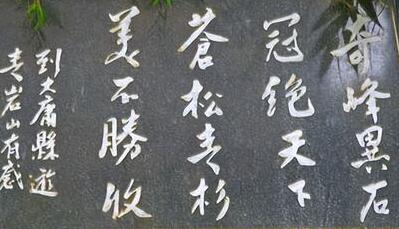 奇峰異石
冠絶天下
蒼松青杉
美不勝收
到大庸縣遊
青岩山有感